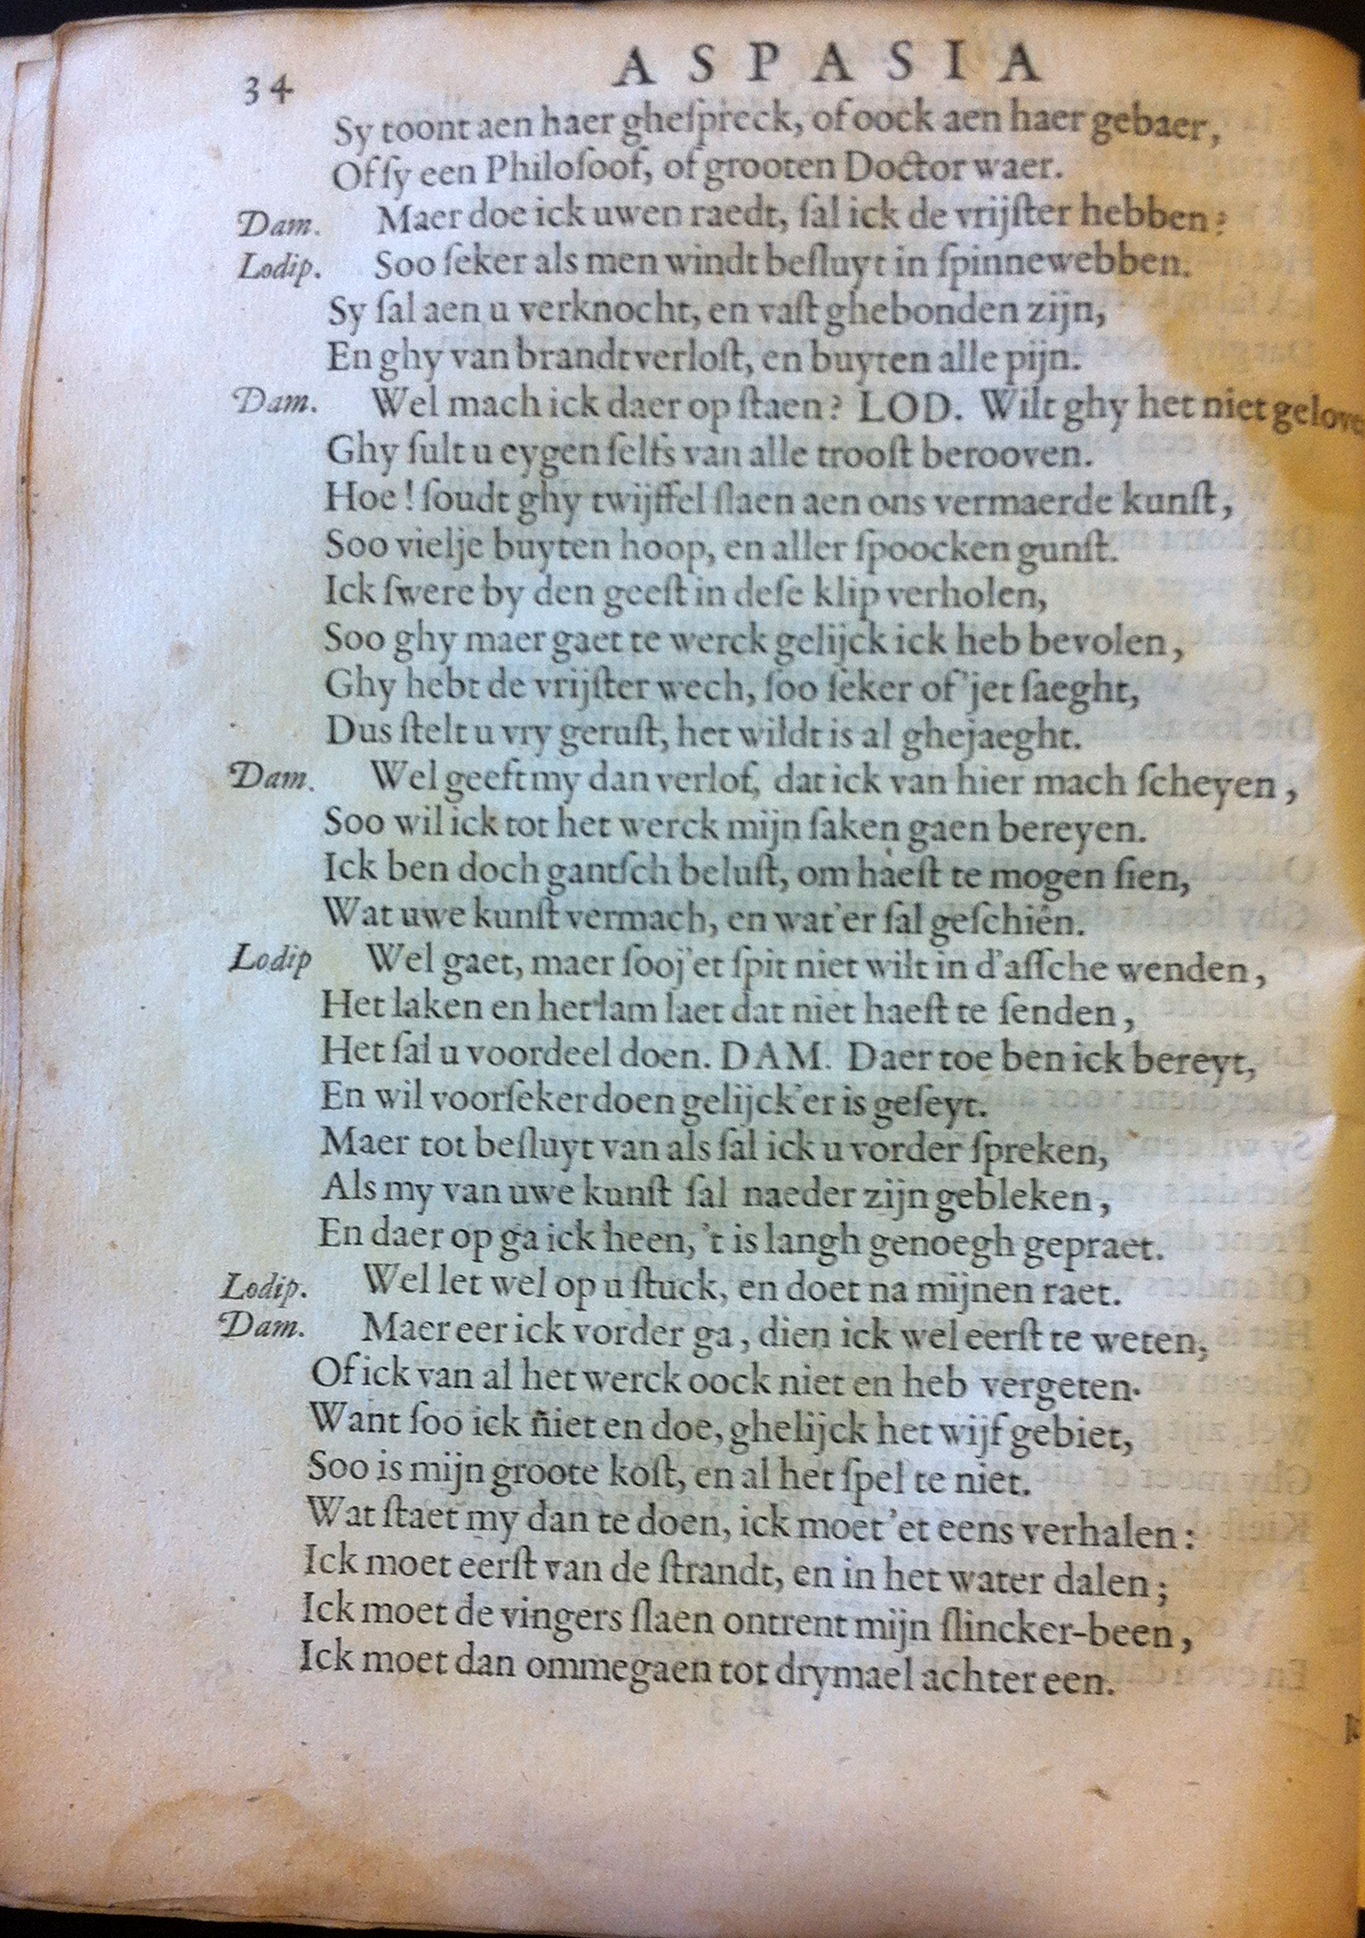 34 ASPASIA
Sy toont aen haer gheſpreck, of oock aen haer gebaer,
Of ſy een Philoſoof, of grooten Doctor waer.
Dam. Maer doe ick uwen raedt, ſal ick de vrijſter hebben?
Lodip. Soo ſeker als men windt beſluyt in ſpinnewebben.
Sy ſal aen u verknocht, en vaſt ghebonden zijn,
En ghy van brandt verloſt, en buyten alle pijn.
Dam. Wel mach ick daer op ſtaen? LOD. Wilt ghy het niet gelove
Ghy ſult u eygen ſelfs van alle trooſt berooven.
Hoe! ſoudt ghy twijffel ſlaen aen ons vermaerde kunſt,
Soo vielje buyten hoop, en aller ſpoocken gunſt.
Ick ſwere by den geeſt in deſe klip verholen,
Soo ghy maer gaet te werck gelijck ick heb bevolen,
Ghy hebt de vrijſter wech, ſoo ſeker of 'jet ſaeght,
Dus ſtelt u vry geruſt, het wildt is al ghejaeght.
Dam. Wel geeft my dan verlof, dat ick van hier mach ſcheyen,
Soo wil ick tot het werck mijn ſaken gaen bereyen.
Ick ben doch gantſch beluſt, om haeſt te mogen ſien,
Wat uwe kunſt vermach, en wat'er ſal geſchiên.
Lodip Wel gaet, maer ſooj'et ſpit niet wilt in d'aſſche wenden,
Het laken en het lam laet dat niet haeſt te ſenden,
Het ſal u voordeel doen. DAM. Daer toe ben ick bereyt,
En wil voorſeker doen gelijck'er is geſeyt.
Maer tot beſluyt van als ſal ick u vorder ſpreken,
Als my van uwe kunſt ſal naeder zijn gebleken,
En daer op ga ick heen, 't is langh genoegh gepraet.
Lodip. Wel let wel op u ſtuck, en doet na mijnen raet.
Dam. Maer eer ick vorder ga, dien ick wel eerſt te weten,
Of ick van al het werck oock niet en heb vergeten.
Want ſoo ick niet en doe, ghelijck het wijf gebiet,
Soo is mijn groote koſt, en al het ſpel te niet.
Wat ſtaet my dan te doen, ick moet 'et eens verhalen:
Ick moet eerſt van de ſtrandt, en in het water dalen;
Ick moet de vingers ſlaen ontrent mijn ſlincker-been,
Ick moet dan ommegaen tot drymael achter een.